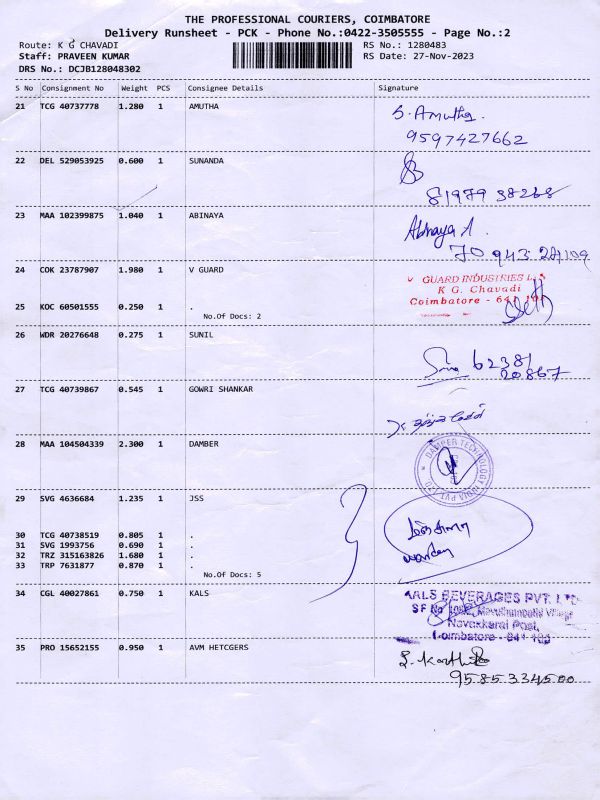 THE PROFESSIONAL COURIERS, COIMBATORE
Delivery Runsheet - PCK - Phone No.:0422-3505555 - Page No.:2
Route: K G CHAVADI RS No.: 1280483
Staff: PRAVEEN KUMAR RS Date: 27-Nov-2023
DRS No.: DCJB128048302
S No Consignment No Weight PCS Consignee Details Signature
21 TCG 40737778 1.280 1 AMUTHA S. Amutha.
9597427662
22 DEL 529053925 0.600 1 SUNANDA
81979 38268
23 MAA 102399875 1.040 1 ABINAYA Abinaya A.
70 943 28109
24 COK 23787907 1.980 1 V GUARD
V GUARD INDUSTRIES L
K G. Chavadi
Coimbatore - 641
25 KOC 60501555 0.250 1 .
No.Of Docs: 2
26 WDR 20276648 0.275 1 SUNIL
6238/
20867
27 TCG 40739867 0.545 1 GOWRI SHANKAR
28 MAA 104504339 2.300 1 DAMBER
DAMPER TECHNOLOGY INDIA PVT LTD
29 SVG 4636684 1.235 1 JSS
30 TCG 40738519 0.805 1 .
31 SVG 1993756 0.690 1 .
32 TRZ 315163826 1.680 1 .
33 TRP 7631877 0.870 1 .
warden
No.Of Docs: 5
34 CGL 40027861 0.750 1 KALS
KALS BEVERAGES PVT. LTD
SF No
Navakkarai Post,
Coimbatore - 641 105
35 PRO 15652155 0.950 1 AVM HETCGERS
S. Karthik
95853 34500